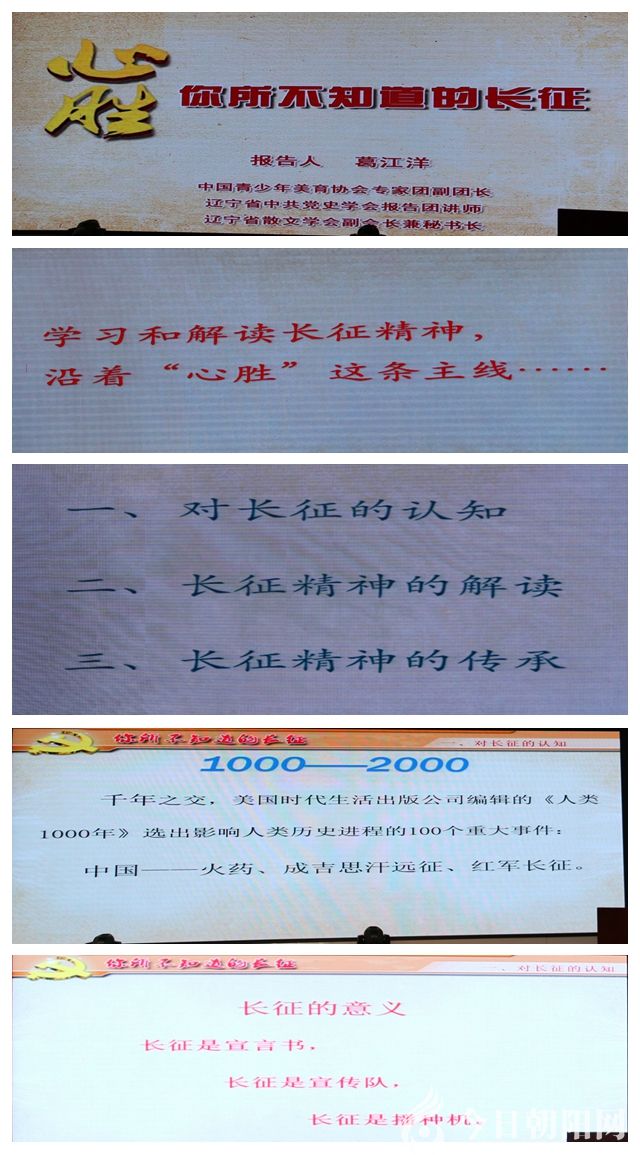 心胜
你所不知道的长征
报告人 葛江洋
中国青少年美育协会专家团副团长
辽宁省中共党史学会报告团讲师
辽宁省散文学会副会长兼秘书长
学习和解读长征精神，
沿着“心胜”这条主线……
一、对长征的认知
二、长征精神的解读
三、长征精神的传承
你所不知道的长征
一、对长征的认知
1000——2000
千年之交，美国时代生活出版公司编辑的《人类
1000年》选出影响人类历史进程的100个重大事件：
中国——火药、成吉思汗远征、红军长征。
你所不知道的长征
一、对长征的认知
长征的意义
长征是宣言书，
长征是宣传队，
长征是播种机。
今日朝阳网